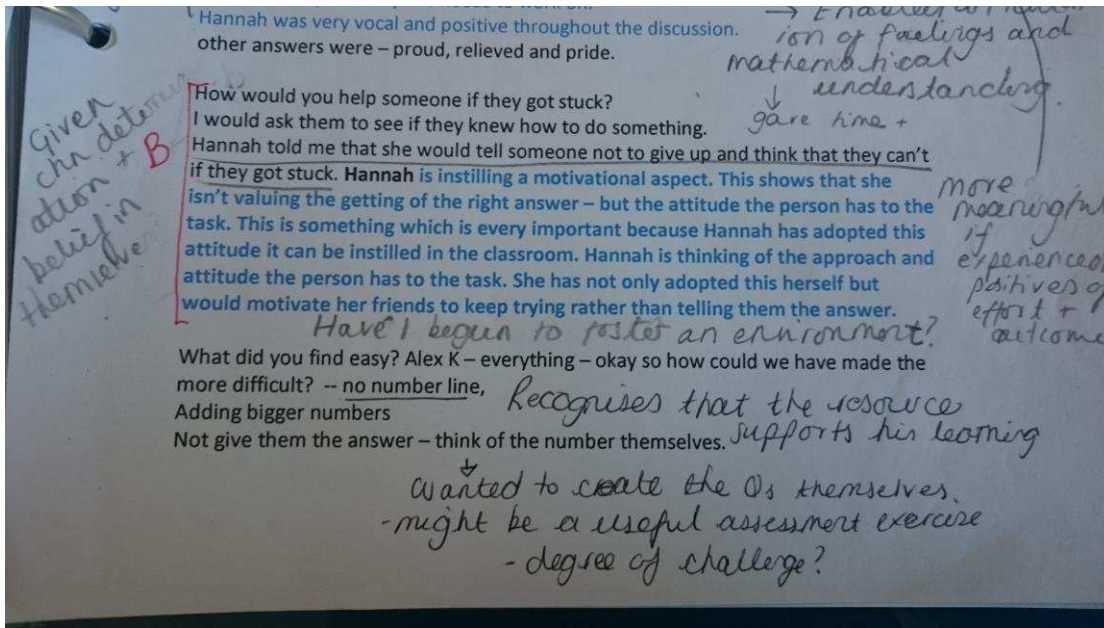 Hannah was very vocal and positive throughout the discussion.
other answers were – proud, relieved and pride.
→
ion of feelings and
mathematical
understanding.
↓
gave time +
How would you help someone if they got stuck?
I would ask them to see if they knew how to do something.
Hannah told me that she would tell someone not to give up and think that they can't
if they got stuck. Hannah is instilling a motivational aspect. This shows that she
isn't valuing the getting of the right answer – but the attitude the person has to the
task. This is something which is every important because Hannah has adopted this
attitude it can be instilled in the classroom. Hannah is thinking of the approach and
attitude the person has to the task. She has not only adopted this herself but
would motivate her friends to keep trying rather than telling them the answer.
Given
chn determin
ation +
belief in
themselve
B
more
meaningful
if
experienced
positives of
effort +
outcome
Have I begun to foster an environment?
What did you find easy? Alex K – everything – okay so how could we have made the
more difficult? -- no number line,
Recognises that the resource
supports his learning
Adding bigger numbers
Not give them the answer – think of the number themselves.
↓
wanted to create the Qs themselves.
- might be a useful assessment exercise
- degree of challenge?